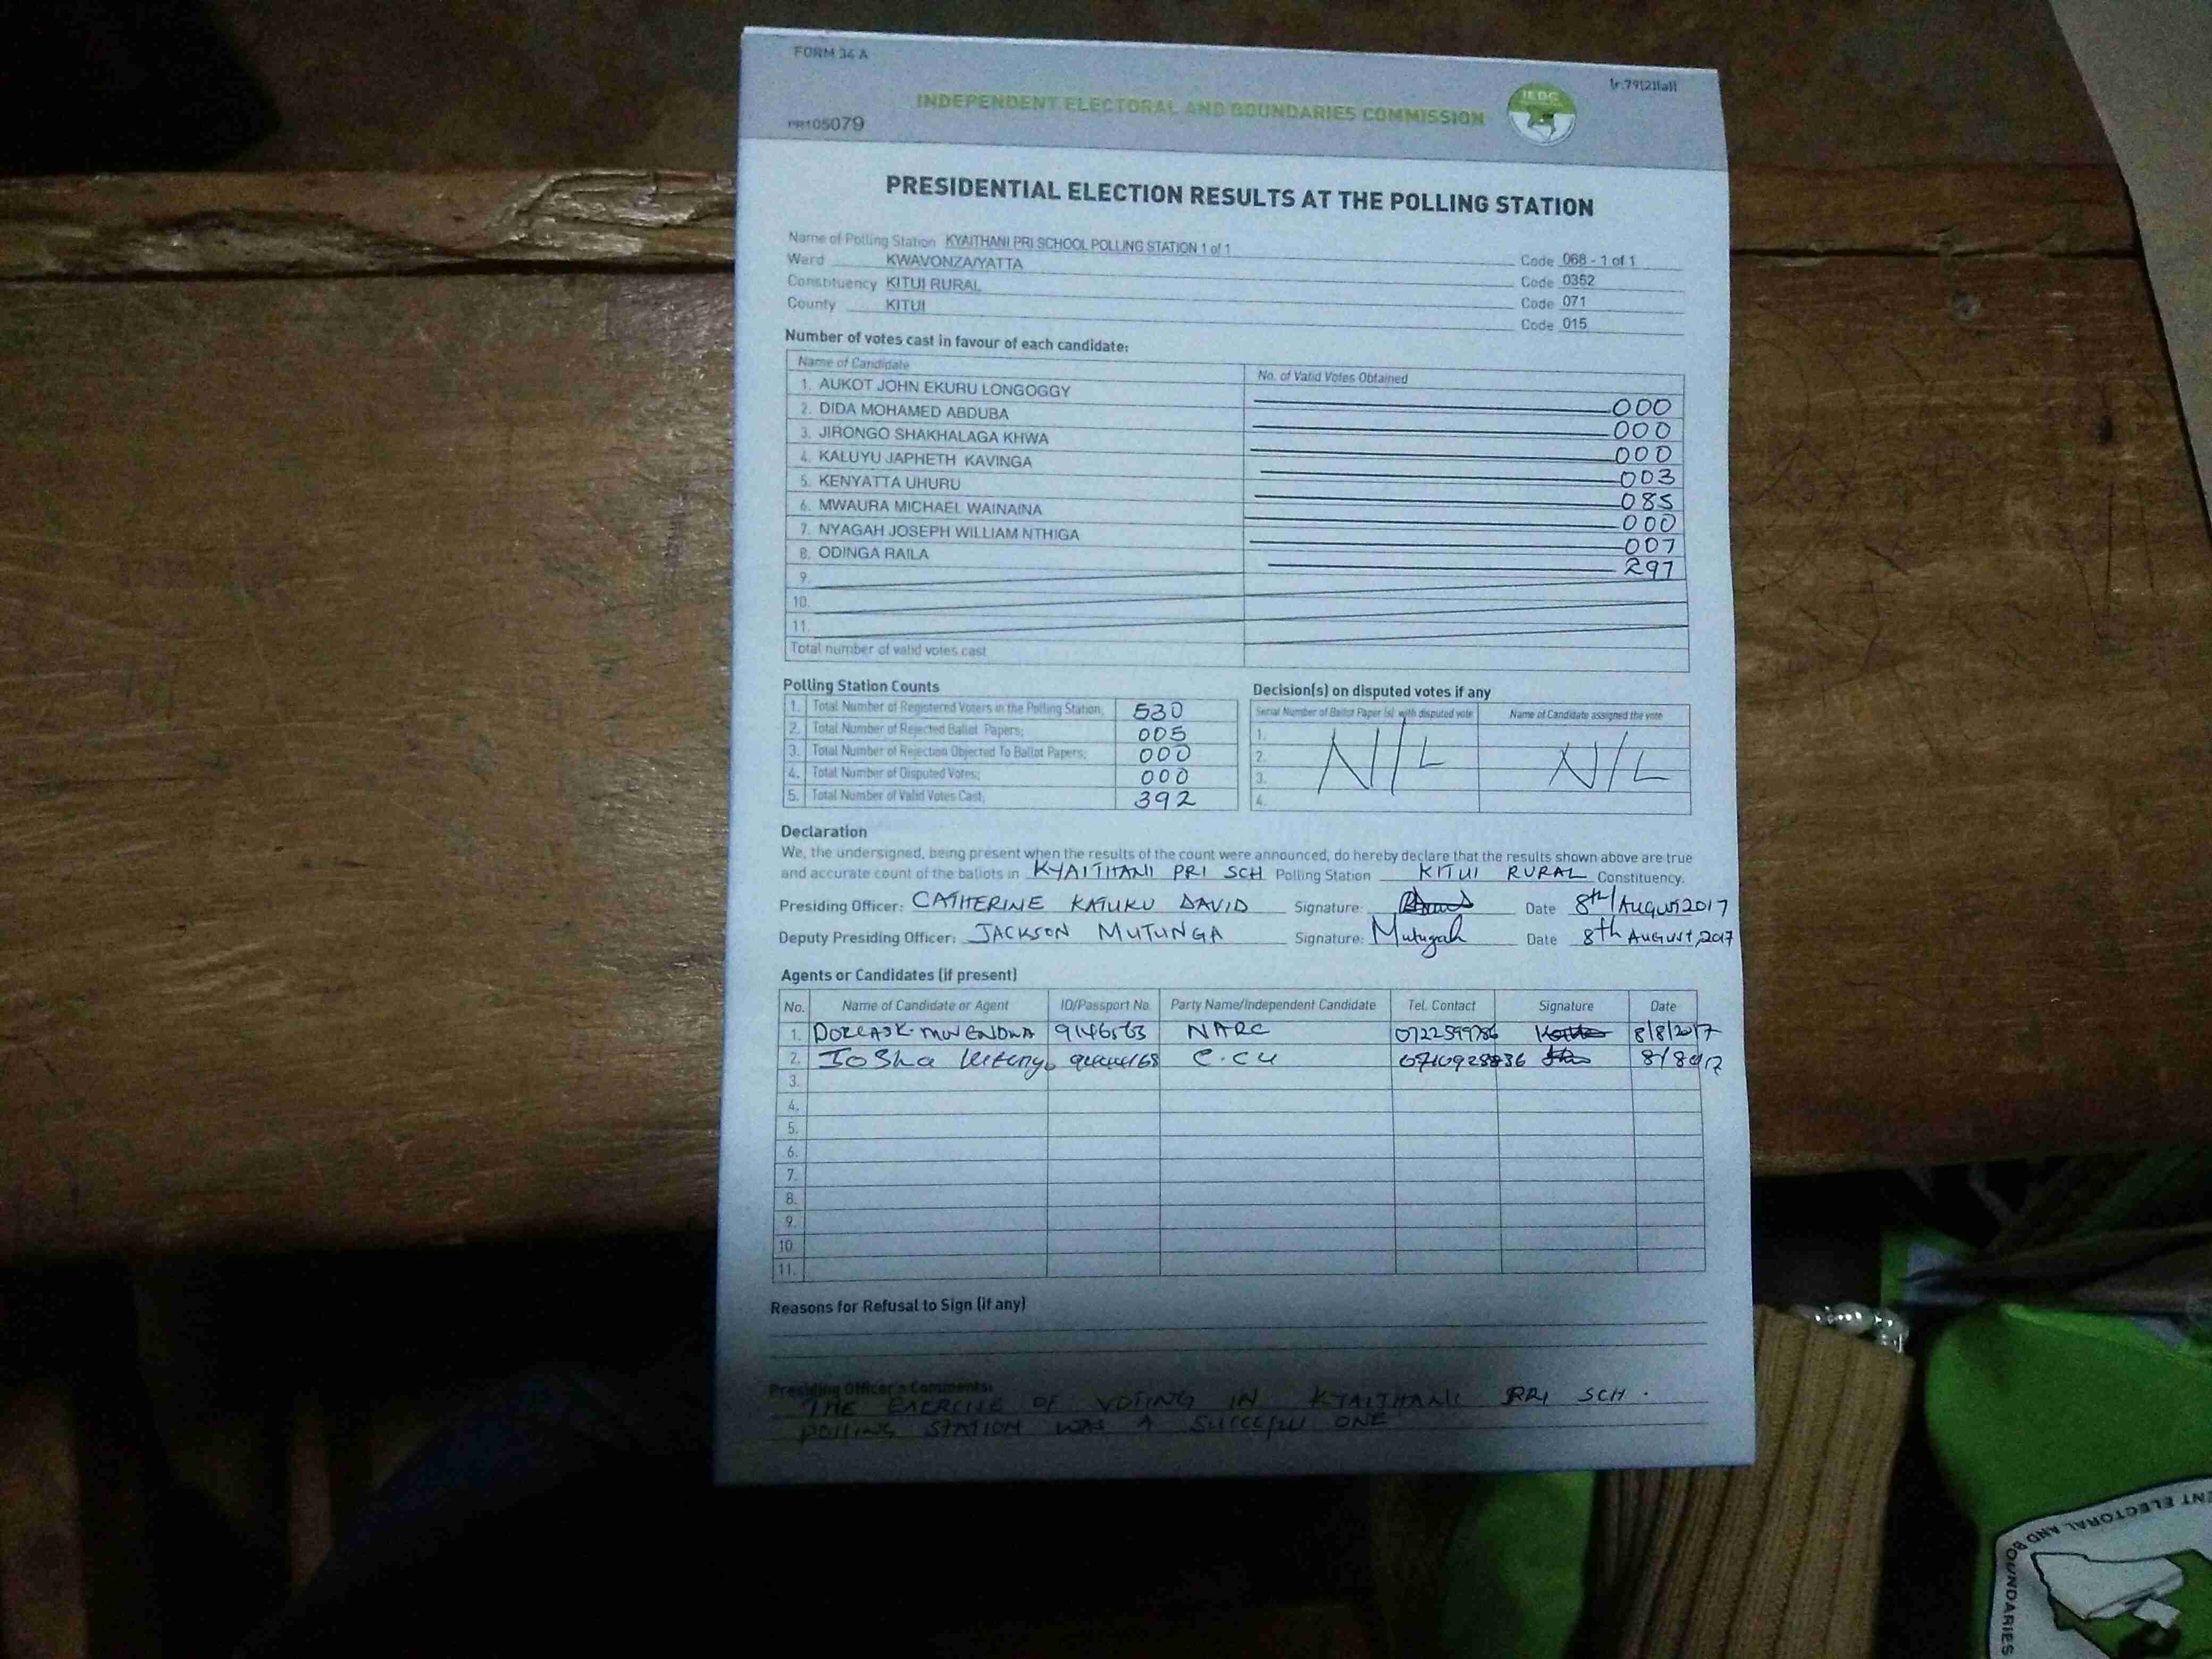 FORM 34 A
(r.79(2)(a))
INDEPENDENT ELECTORAL AND BOUNDARIES COMMISSION
IEBC
PR105079
PRESIDENTIAL ELECTION RESULTS AT THE POLLING STATION
Name of Polling Station KYAITHANI PRI SCHOOL POLLING STATION 1 of 1 Code 068 - 1 of 1
Ward KWAVONZA/YATTA Code 0352
Constituency KITUI RURAL Code 071
County KITUI Code 015
Number of votes cast in favour of each candidate:
Name of Candidate No. of Valid Votes Obtained
1. AUKOT JOHN EKURU LONGOGGY 000
2. DIDA MOHAMED ABDUBA 000
3. JIRONGO SHAKHALAGA KHWA 000
4. KALUYU JAPHETH KAVINGA 003
5. KENYATTA UHURU 085
6. MWAURA MICHAEL WAINAINA 000
7. NYAGAH JOSEPH WILLIAM NTHIGA 007
8. ODINGA RAILA 297
9.
10.
11.
Total number of valid votes cast
Polling Station Counts
1. Total Number of Registered Voters in the Polling Station; 530
2. Total Number of Rejected Ballot Papers; 005
3. Total Number of Rejection Objected To Ballot Papers; 000
4. Total Number of Disputed Votes; 000
5. Total Number of Valid Votes Cast; 392
Decision(s) on disputed votes if any
Serial Number of Ballot Paper (s) with disputed vote Name of Candidate assigned the vote
1.
2. NIL NIL
3.
4.
Declaration
We, the undersigned, being present when the results of the count were announced, do hereby declare that the results shown above are true
and accurate count of the ballots in KYAITHANI PRI SCH Polling Station KITUI RURAL Constituency.
Presiding Officer: CATHERINE KATUKU DAVID Signature: Date 8th/AUGUST2017
Deputy Presiding Officer: JACKSON MUTUNGA Signature: Mutugah Date 8th AUGUST,2017
Agents or Candidates (if present)
No. Name of Candidate or Agent ID/Passport No. Party Name/Independent Candidate Tel. Contact Signature Date
1. DORCAS K. MWENDWA NARC 8/8/2017
2. C.CU
3.
4.
5.
6.
7.
8.
9.
10.
11.
Reasons for Refusal to Sign (if any)
Presiding Officer's Comments:
THE EXERCISE OF VOTING IN KYAITHANI PRI SCH.
POLLING STATION WAS A SUCCEFUL ONE
ENT ELECTORAL AND BOUNDARIES